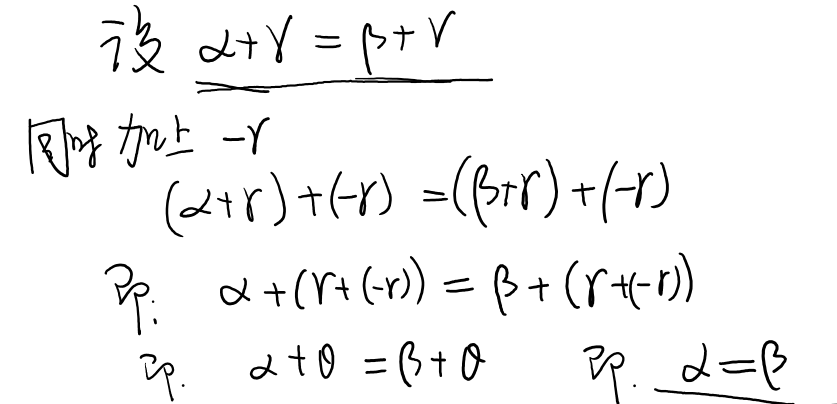 设 α+γ = β+γ
同时加上 -γ
(α+γ)+(-γ) =(β+γ)+(-γ)
即: α+(γ+(-γ)) = β+(γ+(-γ))
即. α+θ =β+θ 即. α=β